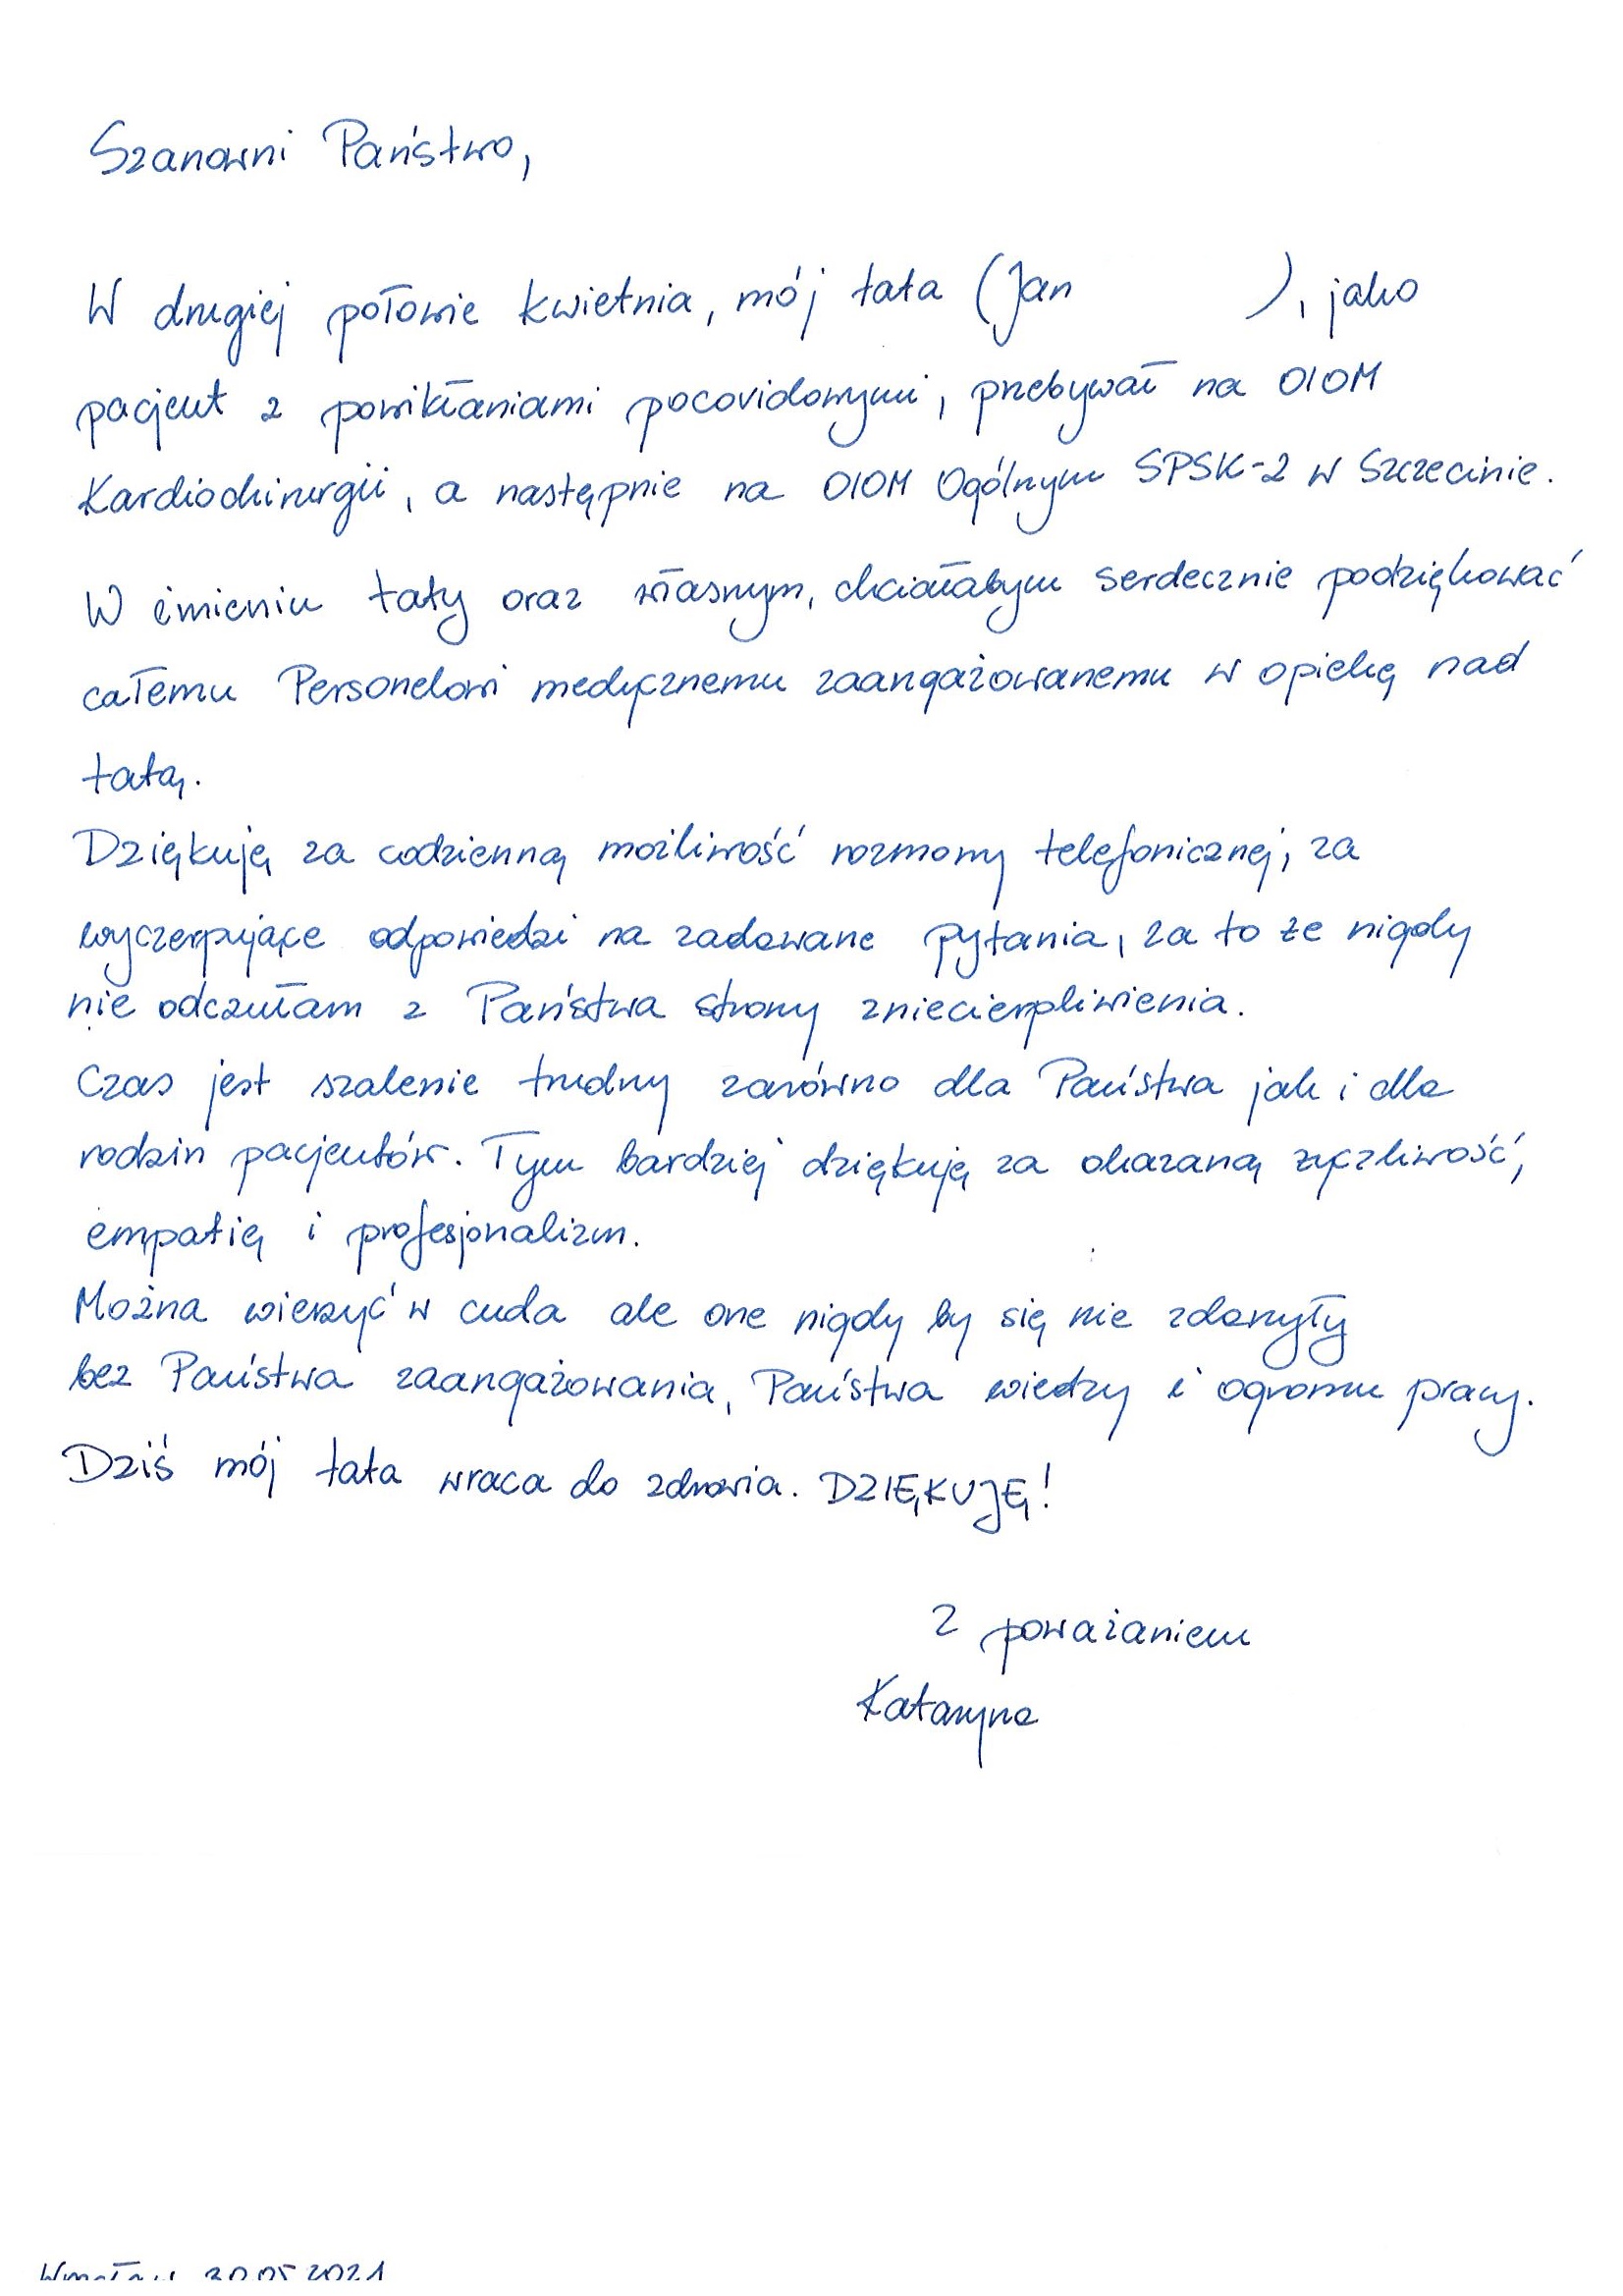 Szanowni Państwo,
W drugiej połowie kwietnia, mój tata (Jan ), jako
pacjent z powikłaniami pocovidowymi, przebywał na OIOM
Kardiochirurgii, a następnie na OIOM Ogólnym SPSK-2 w Szczecinie.
W imieniu taty oraz własnym, chciałabym serdecznie podziękować
całemu Personelowi medycznemu zaangażowanemu w opiekę nad
tatą.
Dziękuję za codzienną możliwość rozmowy telefonicznej, za
wyczerpujące odpowiedzi na zadawane pytania, za to że nigdy
nie odczułam z Państwa strony zniecierpliwienia.
Czas jest szalenie trudny zarówno dla Państwa jak i dla
rodzin pacjentów. Tym bardziej dziękuję za okazaną życzliwość,
empatię i profesjonalizm.
Można wierzyć w cuda ale one nigdy by się nie zdarzyły
bez Państwa zaangażowania, Państwa wiedzy i ogromu pracy.
Dziś mój tata wraca do zdrowia. DZIĘKUJĘ!
Z poważaniem
Katarzyna
Wrocław 30.05.2021